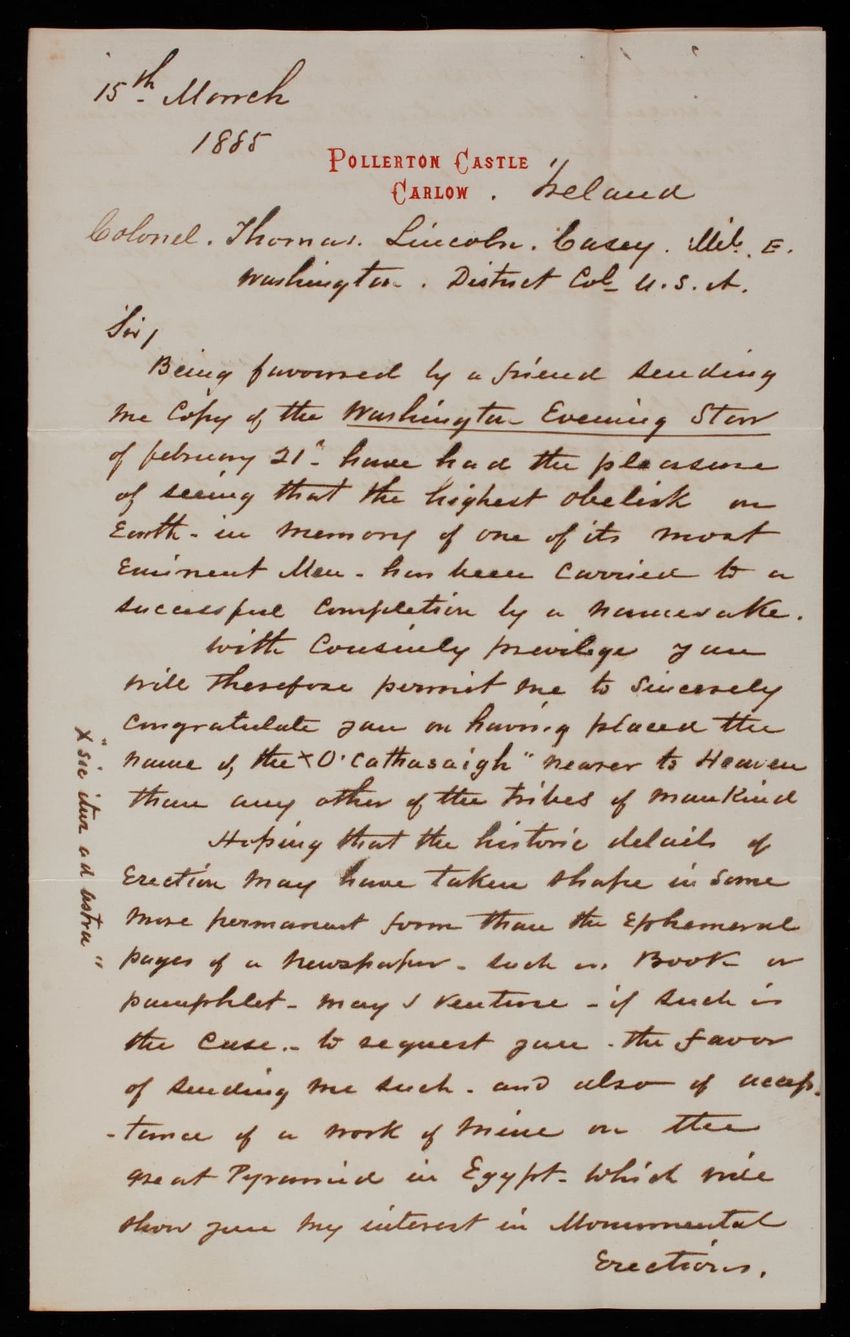 15th March
1885
POLLERTON CASTLE
CARLOW. Ireland
Colonel. Thomas. Lincoln. Casey. Mil. E.
Washington. District Col. U.S.A.
Sir/
Being favoured by a friend sending
me Copy of the Washington Evening Star
of february 21st have had the pleasure
of seeing that the highest obelisk on
Earth - in memory of one of its most
Eminent Men - has been carried to a
successful completion by a namesake.
With Cousinly privilege you
will therefore permit me to sincerely
congratulate you on having placed the
name of the × O'Cathasaigh" nearer to Heaven
than any other of the tribes of mankind
× "sic itur ad astra"
Hoping that the historic details of
Erection may have taken shape in some
more permanent form than the Ephemeral
pages of a newspaper - such as Book or
pamphlet - may I venture - if such is
the case - to request you - the favor
of sending me such - and also of accep-
-tance of a work of mine on the
great Pyramid in Egypt - which will
show you my interest in Monumental
Erections.